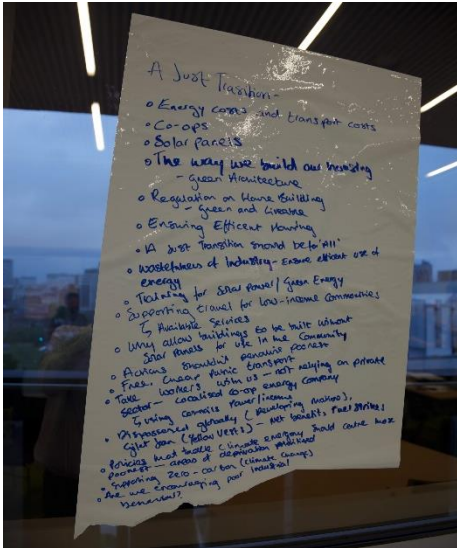 A Just Transition -
• Energy costs and transport costs
• Co-ops
• Solar panels
• The way we build our housing
- Green Architecture
• Regulation on House Building
- Green and
• Ensuring Efficent Housing
• A Just Transition should be for 'All'
• Wastefulness of Industry - Ensure efficent use of
energy
• Training for Solar Power/Green Energy
• Supporting travel for low-income Communities
↳ Available Services
• Why allow buildings to be built without
Solar Panels for use in the Community
• Actions Shouldn't penalise poorest
• Free, Cheap public transport
• Take workers with us - not relying on private
Sector - Localised co-op energy company
↳ using councils Power/income
• Dispossessed globally (Developing nations),
(Yellow Vests) - Net benefits, Fuel Strikes
• Policies that tackle climate emergency should
poorest - areas of deprivation
• Supporting Zero-carbon (climate change)
• Are we encouraging poor Industrial
behaviour?